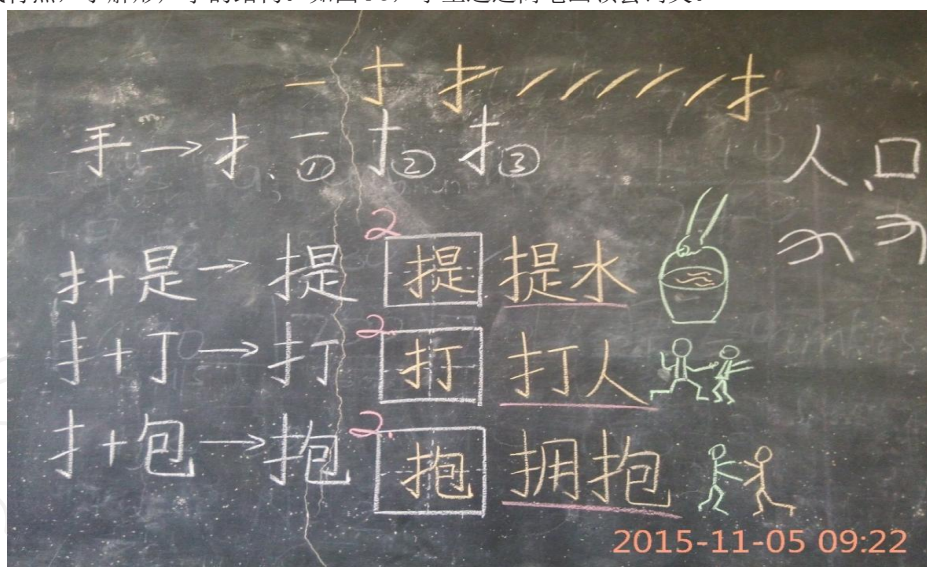 一 扌 扌 扌
手→扌. 一① 扌② 扌③
人、口
扌+是→提 2 提 提水
扌+丁→打 2. 打 打人
扌+包→抱 2. 抱 拥抱
2015-11-05 09:22